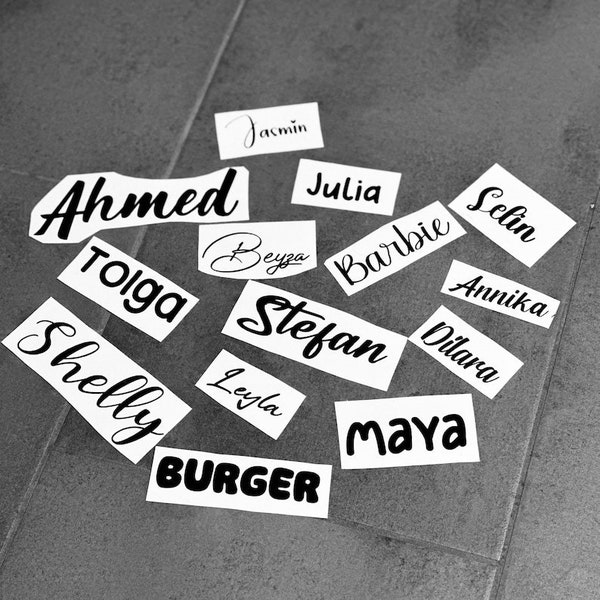 Jasmin
Julia
Ahmed
Selin
Beyza
Barbie
Tolga
Annika
Stefan
Dilara
Shelly
Leyla
MAYA
BURGER